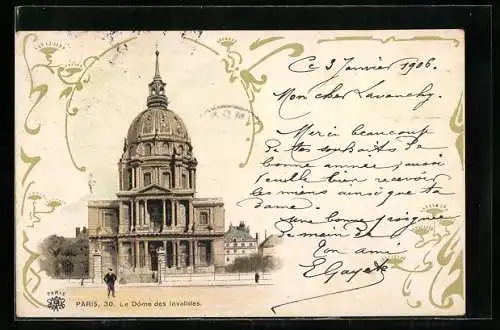 Ce 3 Janvier 1906.
Mon cher Lavanchy.
Merci beaucoup
de tes souhaits de
bonne année, aussi
veuille bien recevoir
les miens ainsi que ta
dame.
Une bonne poignée
de main et
ton ami
PARIS
PARIS. 30. Le Dôme des Invalides.